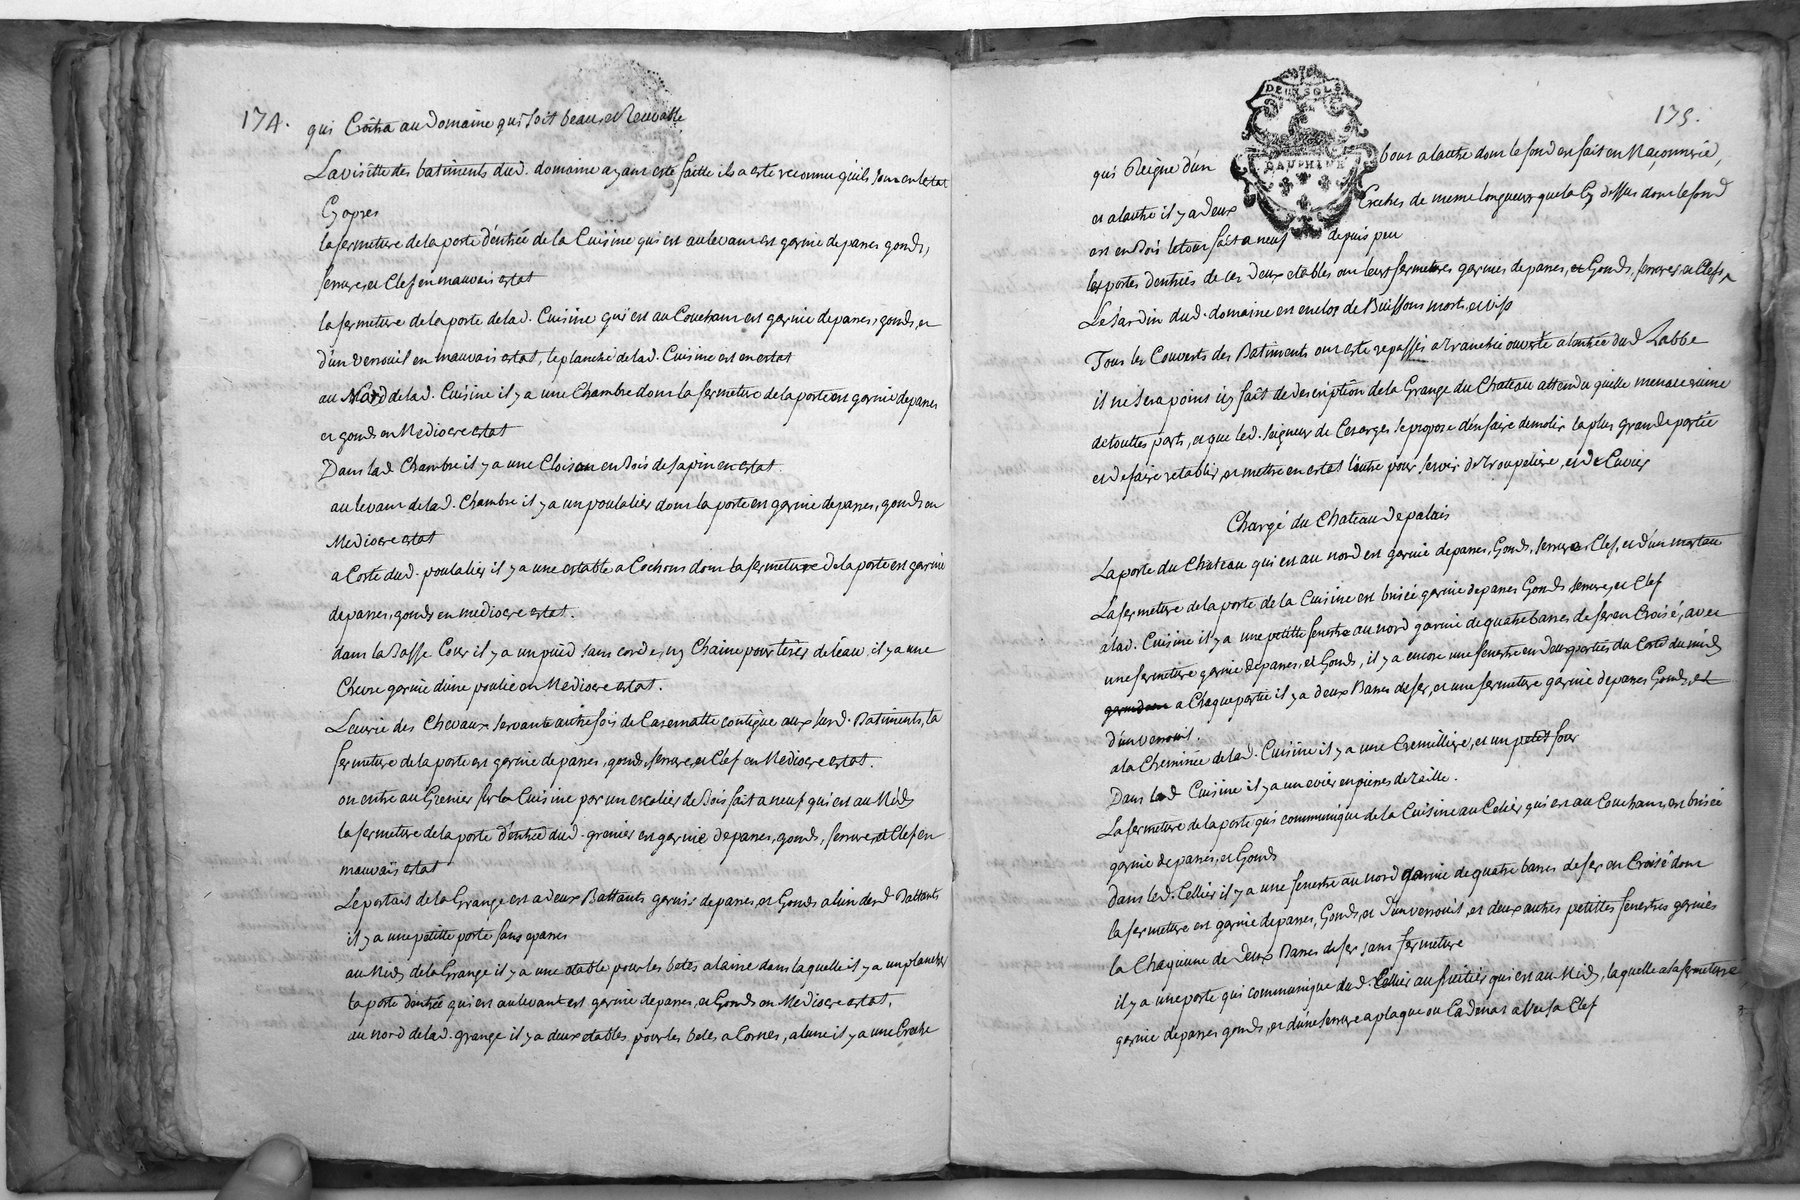 174.
qui Croitra au domaine qui soit beau et Recevable
La visitte des batiments dud. domaine ayant esté faitte il a esté reconnu quils sont en létat
Cy apres
la fermeture de la porte d'entrée de la Cuisine qui est au levant est garnie de panes gonds,
serrure, et Clef en mauvais estat
la fermeture de la porte de lad. Cuisine qui est au Couchant est garnie de panes, gonds, et
d'un verrouil en mauvais estat, le planché de lad. Cuisine est en estat
au Nord de lad. Cuisine il y a une Chambre dont la fermeture de la porte est garnie de panes
et gonds en Mediocre estat
Dans lad. Chambre il y a une Cloison en Bois de sapin en estat.
au levant de lad. Chambre il y a un poulalier dont la porte est garnie de panes, gonds en
Mediocre estat
a Costé dud. poulalier il y a une estable a Cochons dont la fermeture de la porte est garnie
de panes, gonds en mediocre estat.
dans la Basse Cour il y a un puid sans corde, ny Chaine pour tirer de léau, il y a une
Chevre garnie d'une poulie en Mediocre estat.
Lécurie des Chevaux servante autrefois de Casernatte contigue aux susd. Batiments, la
fermeture de la porte est garnie de panes, gonds, serrure, et Clef en Mediocre estat.
on entre au Grenier sur la Cuisine par un escalier de Bois fait a neuf qui est au Midy
la fermeture de la porte d'entrée dud. grenier est garnie de panes, gonds, serrure, et Clef en
mauvais estat
Le portail de la Grange est a deux Battants garnis de panes, et Gonds a l'un desd. Battants
il y a une petitte porte sans epanes
au Midy de la Grange il y a une etable pour les betes a laine dans laquelle il y a un plancher
la porte d'entrée qui est au levant est garnie de panes, et Gonds en Mediocre estat,
au nord de lad. grange il y a deux etables pour les betes a Cornes, a l'une il y a une Creche
175.
DEUX SOLS
DAUPHINE
qui Reigne d'un bout a lautre dont le fond en fait en Maçonnerie,
et a lautre il y a deux Creches de meme longueur que la Cy dessus dont le fond
est en Bois le tout fait a neuf depuis peu
les portes d'entrées de ces deux etables ont leurs fermetures garnies de panes, et Gonds, serrures et Clefs,
Le Jardin dud. domaine est enclos de Buissons morts, et vifs
Tous les Couverts des Batiments ont esté repassés a tranchée ouverte a lentrée dud. Labbe
il ne sera point icy fait de description de la Grange du Chateau attendu quelle menace ruine
de touttes parts, et que led. seigneur de Cesarges se propose d'en faire demolir la plus grande partie
et de faire retablir, et mettre en estat l'autre pour servir de troupeliere, et de Cuvier
Chargé du Chateau de palais
La porte du Chateau qui est au nord est garnie de panes, Gonds, serrure et Clef, et d'un marteau
La fermeture de la porte de la Cuisine est brisée garnie de panes Gonds serrure, et Clef
a lad. Cuisine il y a une petitte fenestre au nord garnie de quatre barres de fer en Croisé, avec
une fermeture garnie de panes, et Gonds, il y a encore une fenestre en deux parties du Costé du midy
a Chaque partie il y a deux Barres de fer, et une fermeture garnie de panes Gonds, et
d'un verrouil.
a la Cheminée de lad. Cuisine il y a une Cremilliere, et un petit four
Dans lad. Cuisine il y a un evier en pierres de taille.
La fermeture de la porte qui communique de la Cuisine au Celier qui est au Couchant est brisée
garnie de panes, et Gonds
dans led. Cellier il y a une fenestre au nord garnie de quatre barres de fer en Croisé dont
la fermeture est garnie de panes, Gonds, et d'un verrouil, et deux autres petittes fenestres garnies
la Chaqune de deux Barres de fer sans fermeture
il y a une porte qui communique dud. Cellier au fruitier qui est au Midy, laquelle a la fermeture
garnie de panes gonds, et d'une serrure a plaque ou Cadenat avec sa Clef